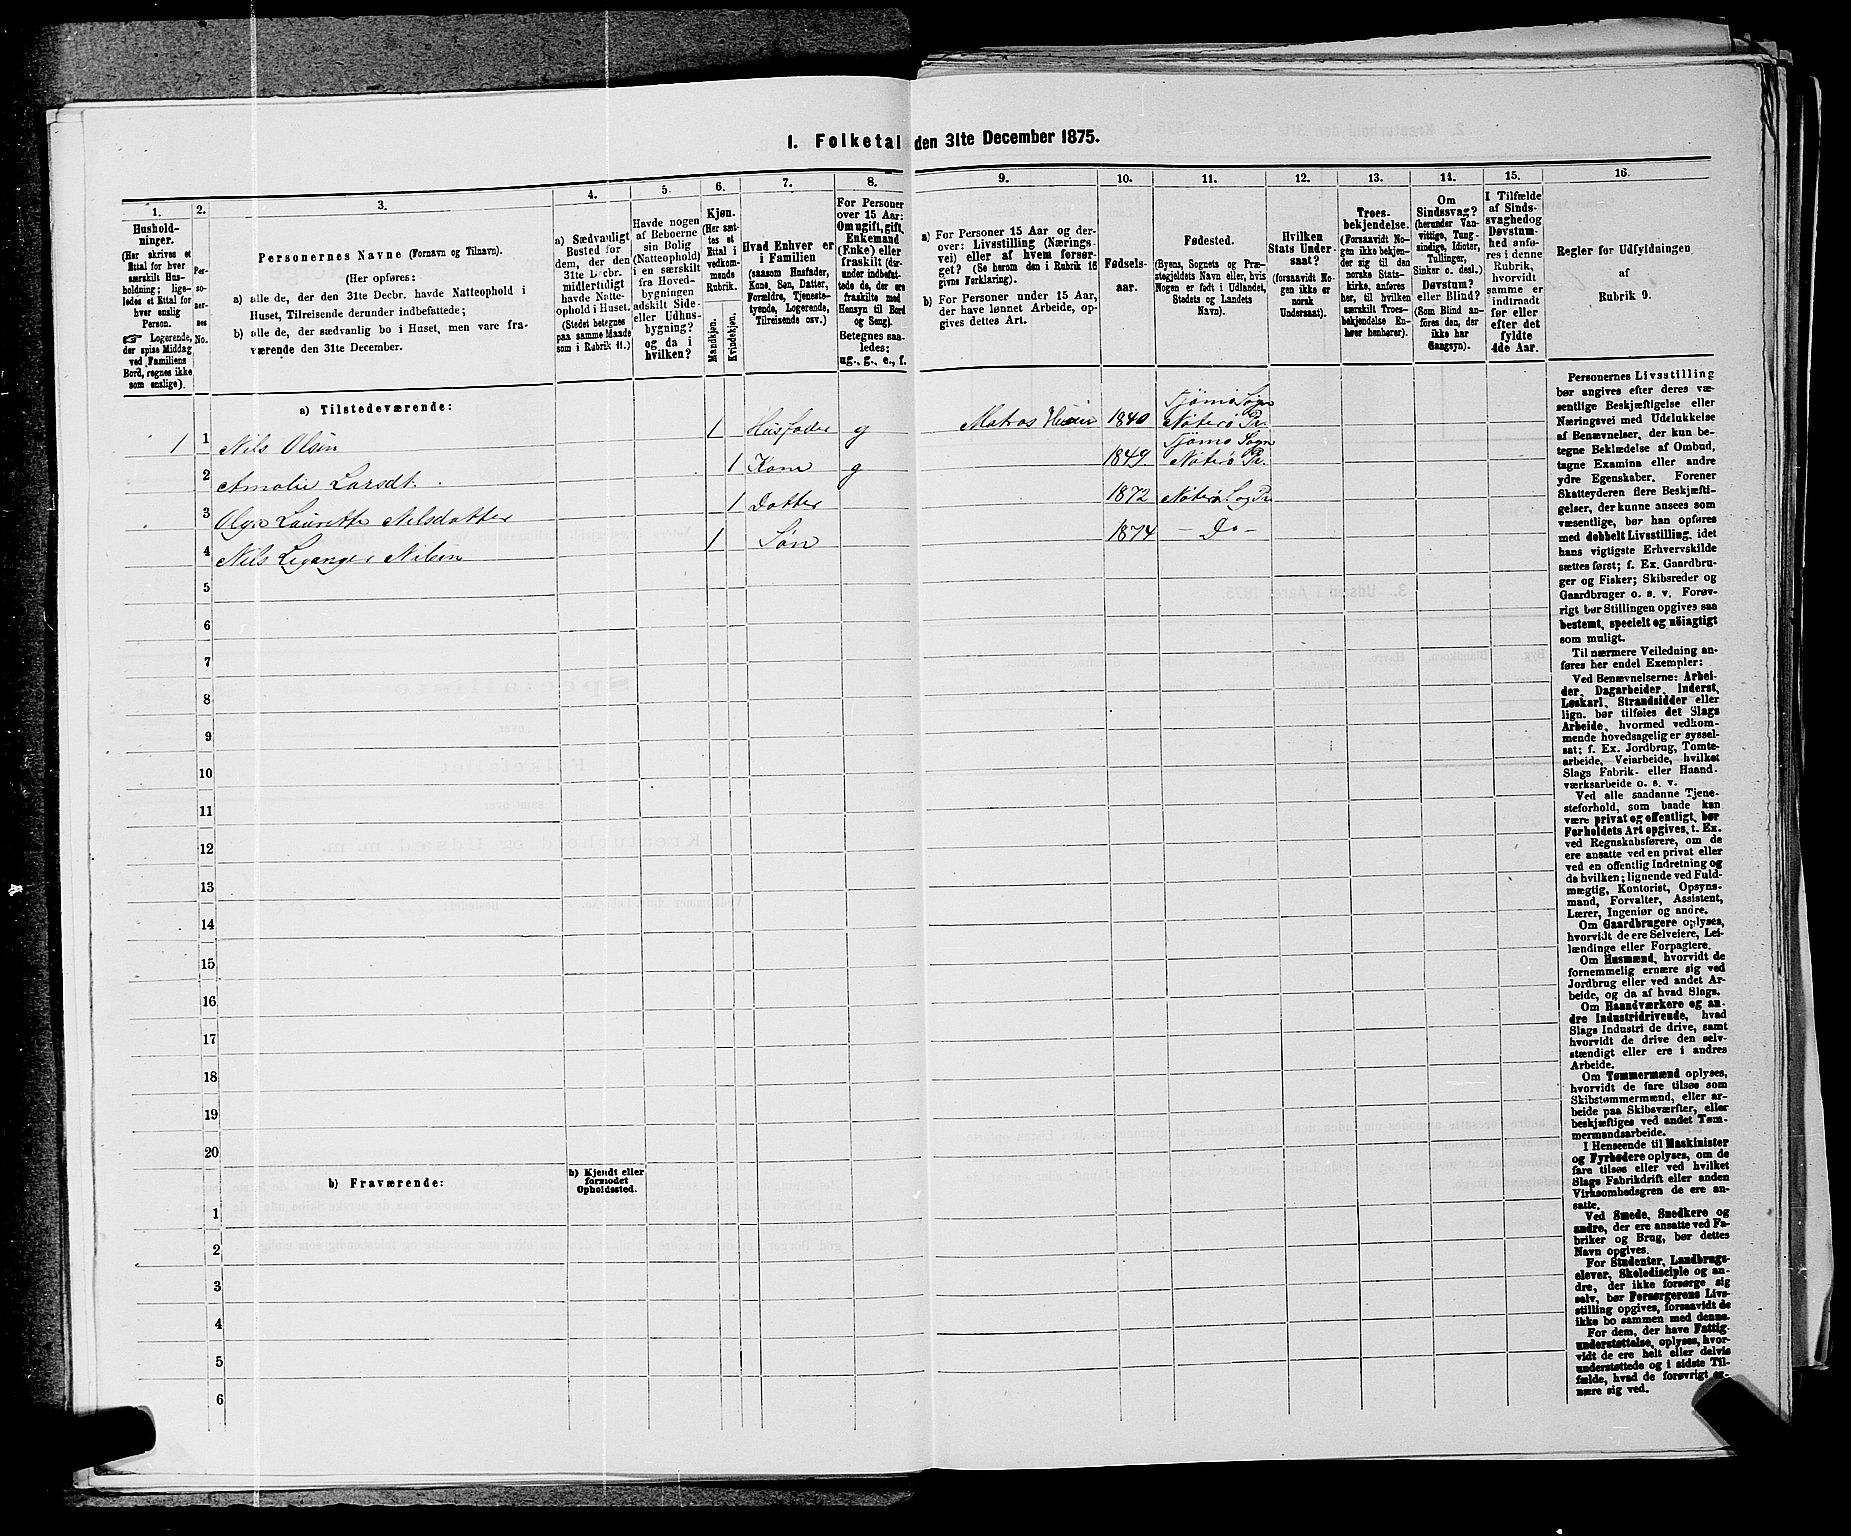 1. Folketal den 31te December 1875.
1.
Hushold-
ninger.
(Her skrives et
Ettal for hver
særskilt Hus-
holdning; lige-
ledes et Ettal for
hver enslig
Person.
☞ Logerende,
der spise Middag
ved Familiens
Bord, regnes ikke
som enslige).
2.
Per-
so-
ner-
nes
No.
3.
Personernes Navne (Fornavn og Tilnavn).
(Her opføres:
a) alle de, der den 31te Decbr. havde Natteophold i
Huset, Tilreisende derunder indbefattede;
b) alle de, der sædvanlig bo i Huset, men vare fra-
værende den 31te December.
4.
a) Sædvanligt
Bosted for
dem, der den
31te Decbr.
midlertidigt
havde Natte-
ophold i Huset.
(Stedet betegnes
paa samme Maade
som i Rubrik 11.)
5.
Havde nogen
af Beboerne
sin Bolig
(Natteophold)
i en særskilt
fra Hoved-
bygningen
adskilt Side-
eller Udhus-
bygning?
og da i
hvilken?
6.
Kjøn.
(Her sæt-
tes et
Ettal i
vedkom-
mende
Rubrik.
Mandkjøn.
Kvindekjøn.
7.
Hvad Enhver er
i Familien
(saasom Husfader,
Kone, Søn, Datter,
Forældre, Tjeneste-
tyende, Logerende,
Tilreisende osv.)
8.
For Personer
over 15 Aar:
Om ugift, gift,
Enkemand
(Enke) eller
fraskilt (der-
under indbefat-
tede de, der ere
fraskilte med
Hensyn til Bord
og Seng).
Betegnes saa-
ledes:
ug., g., e., f.
9.
a) For Personer 15 Aar og der-
over: Livsstilling (Nærings-
vei) eller af hvem forsør-
get? (Se herom den i Rubrik 16
givne Forklaring).
b) For Personer under 15 Aar,
der have lønnet Arbeide, op-
gives dettes Art.
10.
Fødsels-
aar.
11.
Fødested.
(Byens, Sognets og Præ-
stegjeldets Navn eller, hvis
Nogen er født i Udlandet,
Stedets og Landets
Navn).
12.
Hvilken
Stats Under-
saat?
(forsaavidt No-
gen ikke er
norsk
Undersaat).
13.
Troes-
bekjendelse.
(Forsaavidt No-
gen ikke bekjen-
der sig til den
norske Stats-
kirke, anføres
her, til hvilken
særskilt Troes-
bekjendelse En-
hver henhører).
14.
Om
Sindssvag?
(herunder Van-
vittige, Tung-
sindige, Idioter,
Tullinger,
Sinker o. desl.)
Døvstum?
eller Blind?
(Som Blind an-
føres den, der
ikke har
Gangsyn).
15.
I Tilfælde
af Sinds-
svaghed og
Døvstum-
hed anfø-
res i denne
Rubrik,
hvorvidt
samme er
indtraadt
før eller
efter det
fyldte
4de Aar.
16.
Regler for Udfyldningen
af
Rubrik 9.
a) Tilstedeværende:
1 1 Nils Olsen 1 Husfader g Matros 1840 Tjømø Sogn Nøterø Pr.
2 Amalie Larsdt. 1 Kone g 1849. Tjømø Sogn Nøterø Pr.
3 Olga Laurette Nilsdatter 1 Datter 1872 Nøterø S og Pr.
4 Nils Nilsen 1 Søn 1874 — Do —
5
6
7
8
9
10
11
12
13
14
15
16
17
18
19
20
b) Fraværende:
b) Kjendt eller
formodet
Opholdssted.
1
2
3
4
5
6
Personernes Livsstilling
bør angives efter deres væ-
sentlige Beskjæftigelse eller
Næringsvei med Udelukkelse
af Benævnelser, der kun be-
tegne Beklædelse af Ombud,
tagne Examina eller andre
ydre Egenskaber. Forener
Skatteyderen flere Beskjæfti-
gelser, der kunne ansees som
væsentlige, bør han opføres
med dobbelt Livsstilling, idet
hans vigtigste Erhvervskilde
sættes først; f. Ex. Gaardbru-
ger og Fisker; Skibsreder og
Gaardbruger o. s. v. Forøv-
rigt bør Stillingen opgives saa
bestemt, specielt og nøiagtigt
som muligt.
Til nærmere Veiledning an-
føres her endel Exempler:
Ved Benævnelserne: Arbei-
der, Dagarbeider, Inderst,
Løskarl, Strandsidder eller
lign. bør tilføies det Slags
Arbeide, hvormed vedkom-
mende hovedsagelig er syssel-
sat; f. Ex. Jordbrug, Tomte-
arbeide, Veiarbeide, hvilket
Slags Fabrik- eller Haand-
værksarbeide o. s. v.
Ved alle saadanne Tjene-
steforhold, som baade kan
være privat og offentligt, bør
Forholdets Art opgives, t. Ex.
ved Regnskabsførere, om de
ere ansatte ved en privat eller
ved en offentlig Indretning og
da hvilken; lignende ved Fuld-
mægtig, Kontorist, Opsyns-
mand, Forvalter, Assistent,
Lærer, Ingeniør og andre.
Om Gaardbrugere oplyses,
hvorvidt de ere Selveiere, Lei-
lændinge eller Forpagtere.
Om Husmænd, hvorvidt de
fornemmelig ernære sig ved
Jordbrug eller ved andet Ar-
beide, og da af hvad Slags.
Om Haandværkere og an-
dre Industridrivende, hvad
Slags Industri de drive, samt
hvorvidt de drive den selv-
stændigt eller ere i andres
Arbeide.
Om Tømmermænd oplyses,
hvorvidt de fare tilsøs som
Skibstømmermænd, eller ar-
beide paa Skibsværfter, eller
beskjæftiges ved andet Tøm-
mermandsarbeide.
I Henseende til Maskinister
og Fyrbødere oplyses, om de
fare tilsøs eller ved hvilket
Slags Fabrikdrift eller anden
Virksomhedsgren de ere an-
satte.
Ved Smede, Snedkere og
andre, der ere ansatte ved Fa-
briker og Brug, bør dettes
Navn opgives.
For Studenter, Landbrugs-
elever, Skoledisciple og an-
dre, der ikke forsørge sig
selv, bør Forsørgerens Livs-
stilling opgives, forsaavidt de
ikke bo sammen med denne.
For dem, der have Fattig-
understøttelse, oplyses, hvor-
vidt de ere helt eller delvis
understøttede og i sidste Til-
fælde, hvad de forøvrigt er-
nære sig ved.